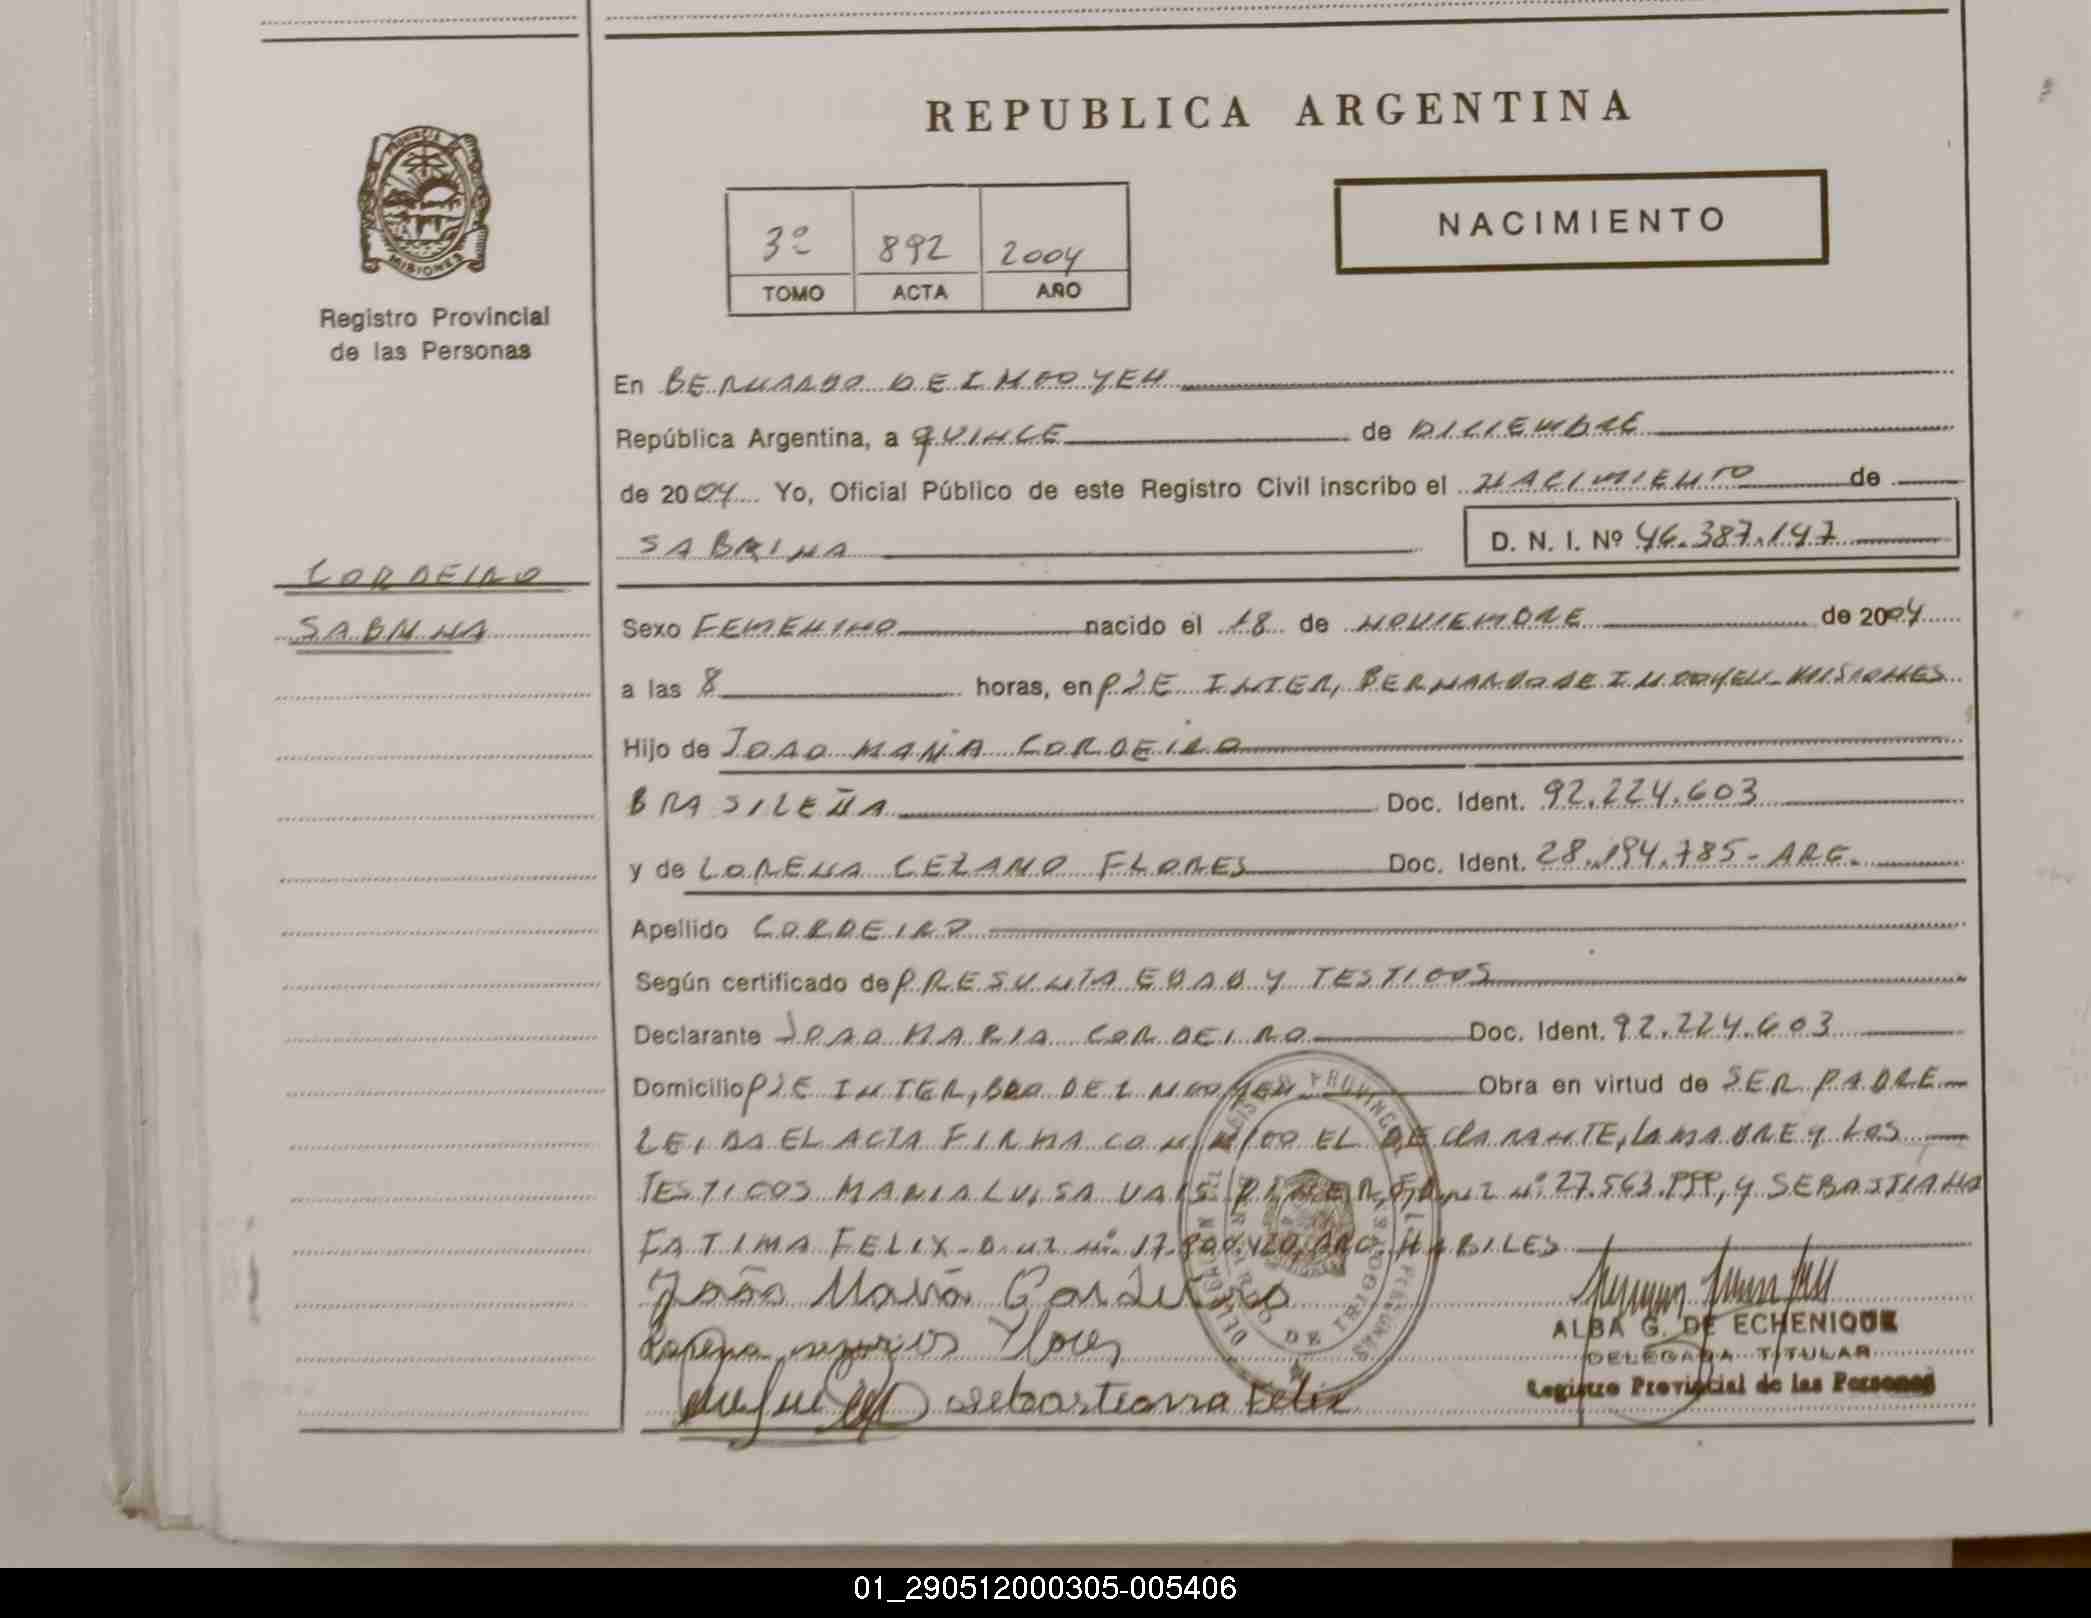 REPUBLICA ARGENTINA
PROVINCIA DE
MISIONES
Registro Provincial
de las Personas
3º 892 2004
TOMO ACTA AÑO
NACIMIENTO
En BERNARDO DE IRIGOYEN
República Argentina, a QUINCE de DICIEMBRE
de 2004 Yo, Oficial Público de este Registro Civil inscribo el NACIMIENTO de
SABRINA D. N. I. Nº 46.387.147
CORDEIRO
SABRINA
Sexo FEMENINO nacido el 18 de NOVIEMBRE de 2004
a las 8 horas, en PJE INTER, BERNARDO DE IRIGOYEN - MISIONES
Hijo de JOAO MARIA CORDEIRO
BRASILEÑA Doc. Ident. 92.224.603
y de LORENA CEZARIO FLORES Doc. Ident. 28.194.785 - ARG.
Apellido CORDEIRO
Según certificado de PRESUNTA EDAD Y TESTIGOS
Declarante JOAO MARIA CORDEIRO Doc. Ident. 92.224.603
Domicilio PJE INTER, BDO DE IRIGOYEN Obra en virtud de SER PADRE
LEIDA EL ACTA FIRMA CONMIGO EL DECLARANTE, LA MADRE Y LOS
TESTIGOS MARIA LUISA D.N.I Nº 27.563. Y SEBASTIANA
FATIMA FELIX - D.N.I Nº 17. ARG. HABILES
João Maria Cordeiro
Lorena Flores
Sebastiana Felix
ALBA G. DE ECHENIQUE
DELEGADA TITULAR
Registro Provincial de las Personas
01_290512000305-005406